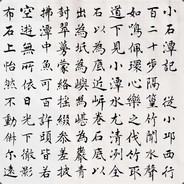 小石潭記 從小邱西行
百二十步隔篁竹聞水聲
如鳴珮環心樂之伐竹取
道下見小潭水尤清冽全
石以為底近岸卷石底以
出為坻為嶼為嵁為巖青
樹翠蔓蒙絡搖綴參差披
拂潭中魚可百許頭皆若
空遊無所依日光下徹影
布石上怡然不動俶尔遠